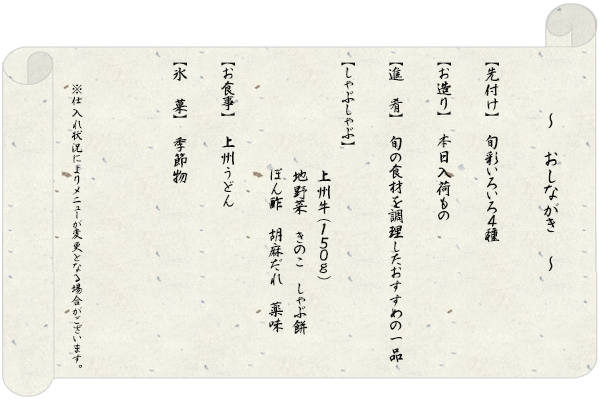 ～ おしながき ～
【先付け】 旬彩いろいろ4種
【お造り】 本日入荷もの
【進 肴】 旬の食材を調理したおすすめの一品
【しゃぶしゃぶ】
上州牛(150g)
地野菜 きのこ しゃぶ餅
ぽん酢 胡麻だれ 薬味
【お食事】 上州うどん
【氷 菓】 季節物
※仕入れ状況によりメニューが変更となる場合がございます。